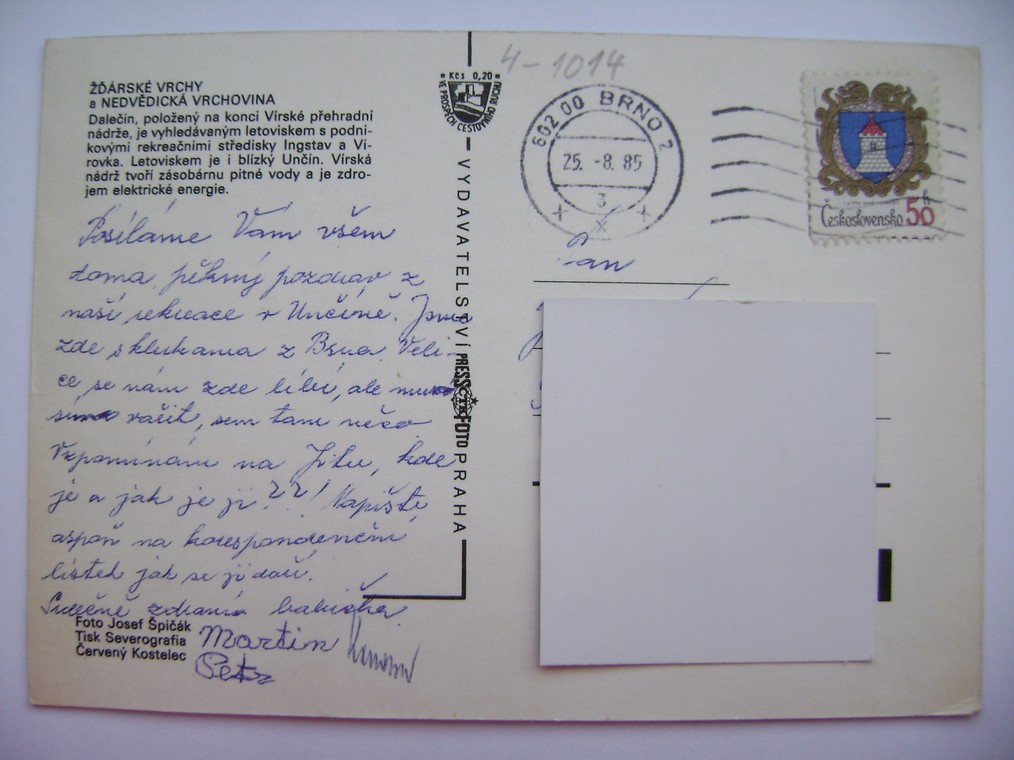 4-1014
ŽĎÁRSKÉ VRCHY
a NEDVĚDICKÁ VRCHOVINA
Dalečín, položený na konci Vírské přehradní
nádrže, je vyhledávaným letoviskem s podni-
kovými rekreačními středisky Ingstav a Ví-
rovka. Letoviskem je i blízký Unčín. Vírská
nádrž tvoří zásobárnu pitné vody a je zdro-
jem elektrické energie.
Posíláme Vám všem
doma pěkný pozdrav z
naší rekreace v Unčíně. Jsme
zde s klukama z Brna. Veli-
ce se nám zde líbí, ale
vařit, sem tam něco
Vzpomínám na Jitu, kde
je a jak je jí??! Napište
aspoň na korespondenční
lístek jak se jí daří.
Srdečně zdraví babička
Martin
Petr
Foto Josef Špičák
Tisk Severografia
Červený Kostelec
Kčs 0,20
VE PROSPĚCH CESTOVNÍHO RUCHU
VYDAVATELSTVÍ PRESSFOTO PRAHA
ČTK
602 00 BRNO 2
25. -8. 85
3
Československo 50 h
Pan